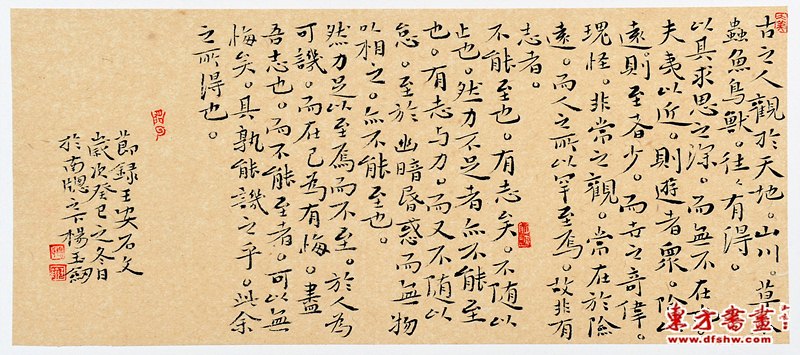 古之人觀於天地。山川。草
蟲魚鳥獸。往々有得。
以其求思之深。而無不在
夫夷以近。則遊者衆。險以
遠。則至者少。而世之奇偉。
瑰怪。非常之觀。常在於險
遠。而人之所以罕至焉。故非有
志者。
不能至也。有志矣。不随以
止也。然力不足者亦不能至
也。有志与力。而又不随以
怠。至於幽暗昏惑而無物
以相之。亦不能至也。
然力足以至焉而不至。於人為
可譏。而在己為有悔。盡
吾志也。而不能至者。可以無
悔矣。其孰能譏之乎。此余
之所得也。
節録王安石文
歲次癸巳之冬日
於南牕之下楊玉
東方書畫
www.dfshw.com